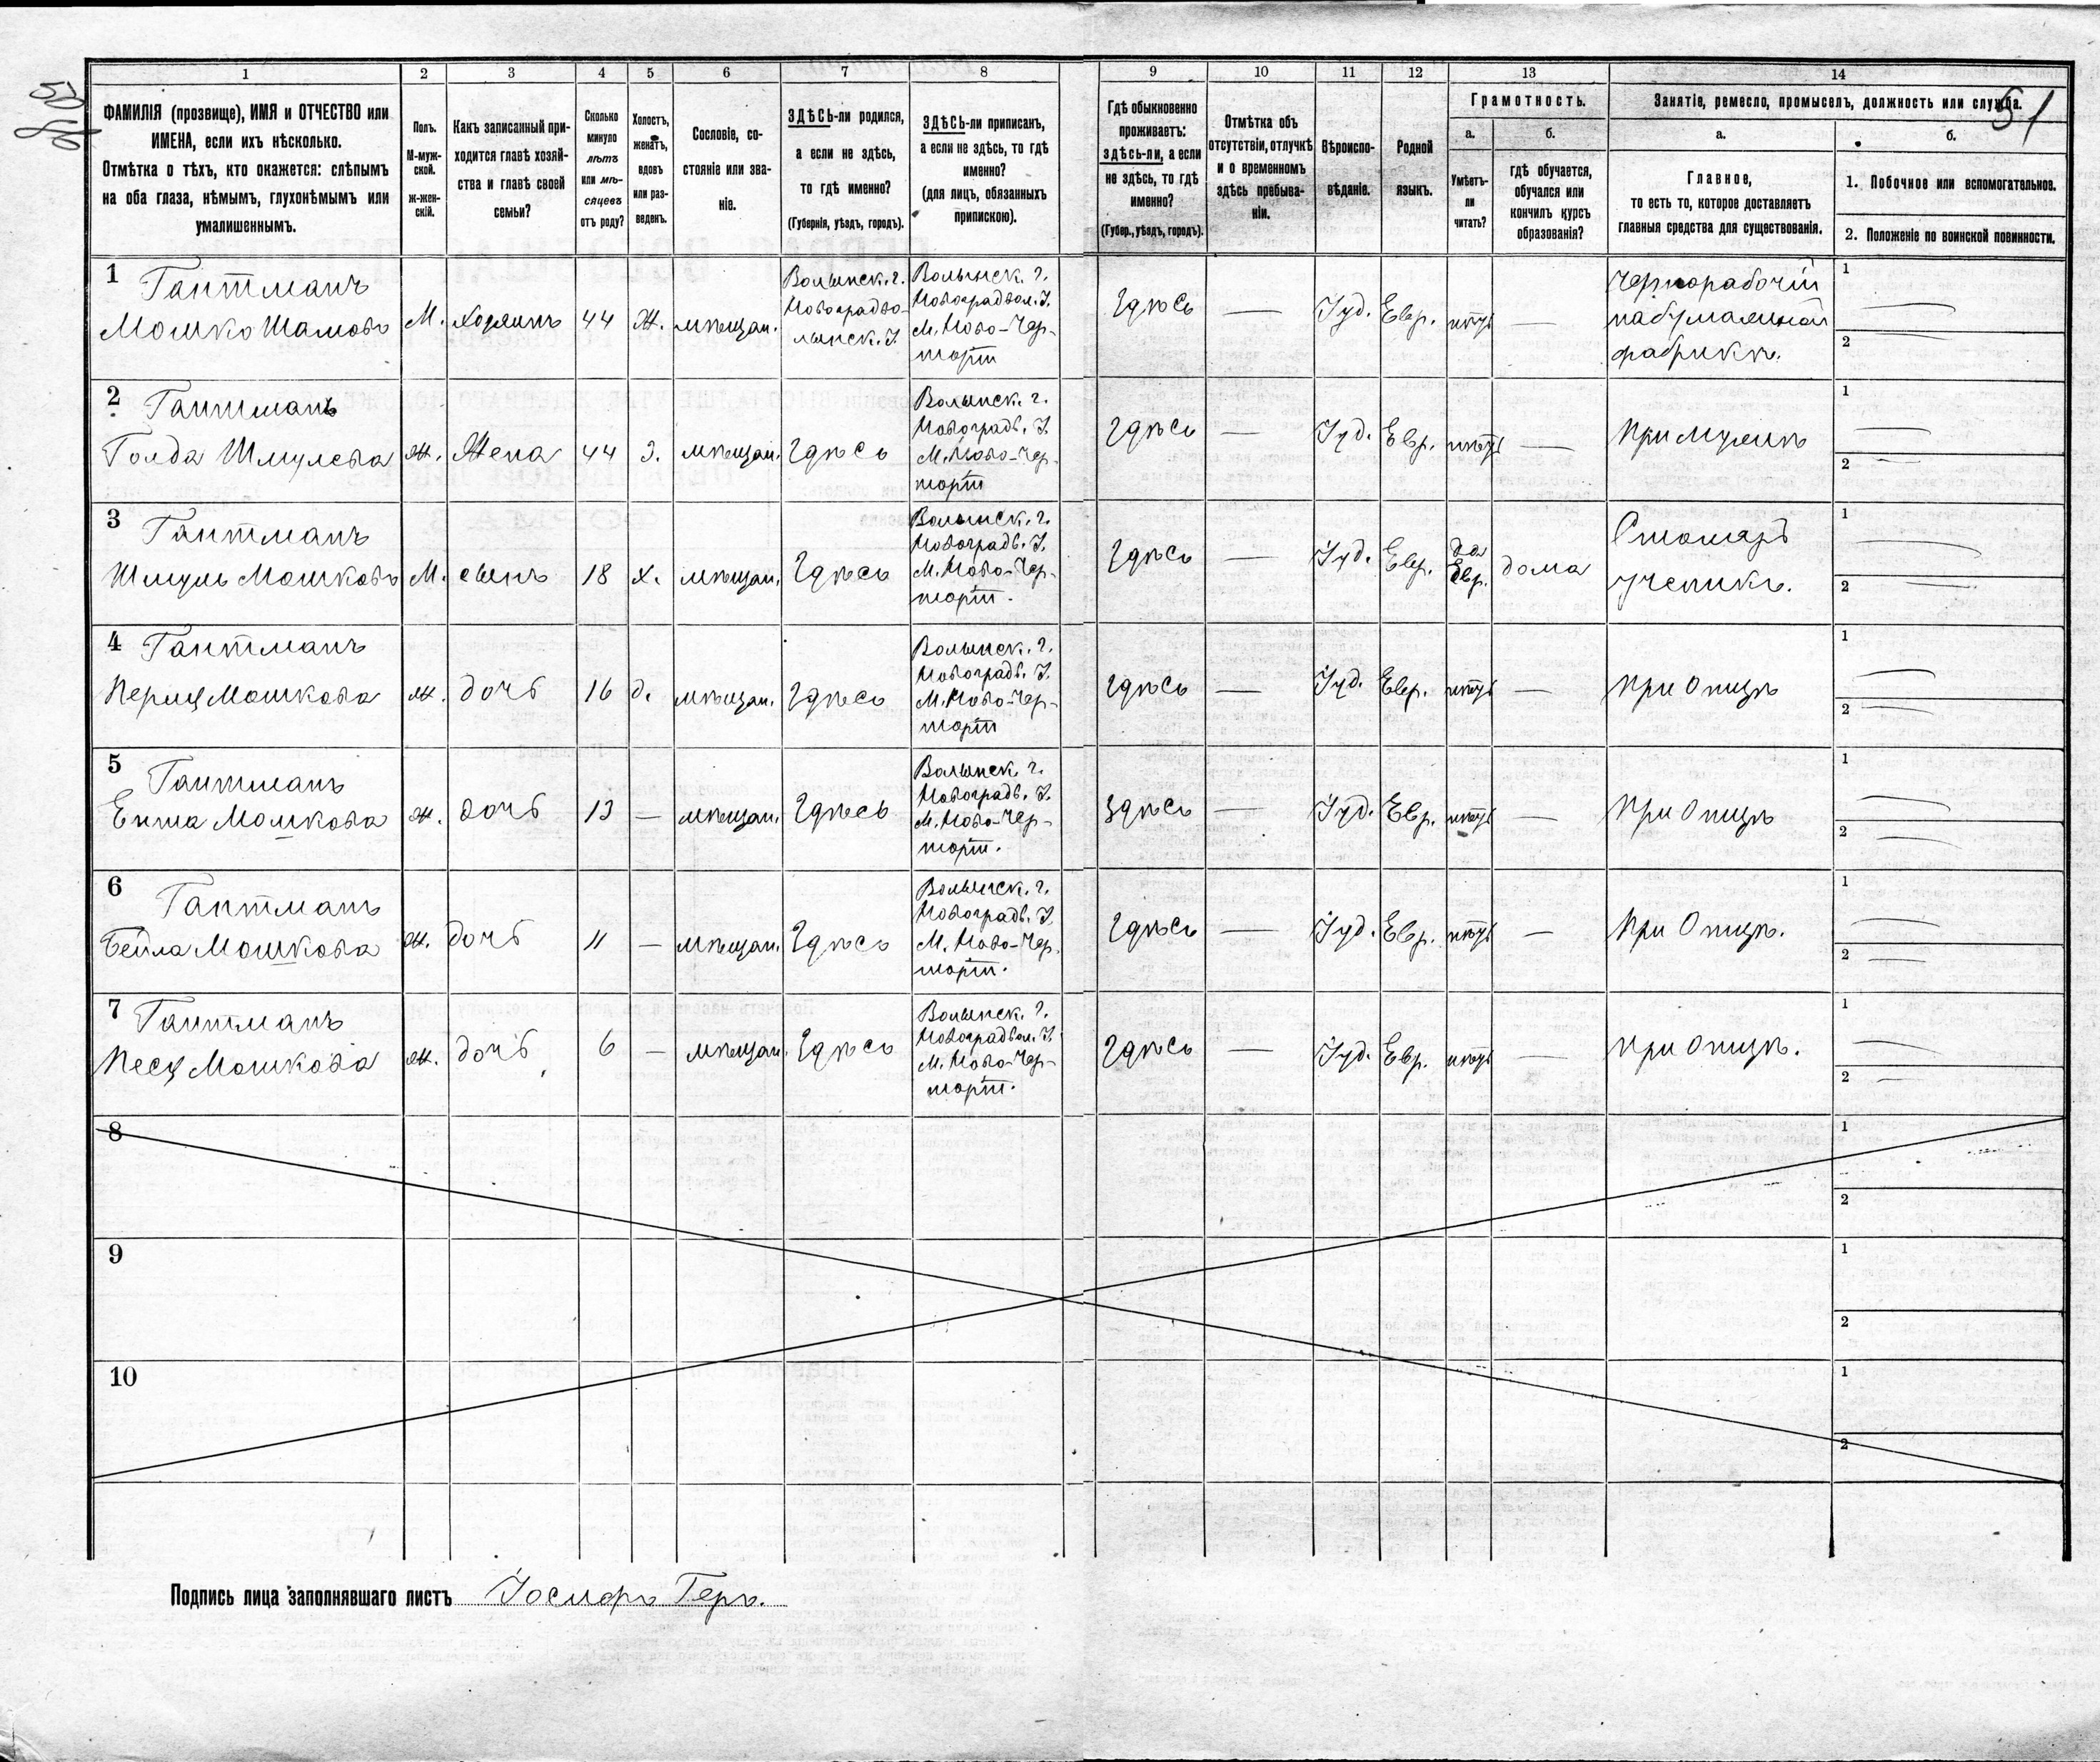 51
1 2 3 4 5 6 7 8 9 10 11 12 13 14
ФАМИЛІЯ (прозвище), ИМЯ и ОТЧЕСТВО или
ИМЕНА, если ихъ нѣсколько.
Отмѣтка о тѣхъ, кто окажется: слѣпымъ
на оба глаза, нѣмымъ, глухонѣмымъ или
умалишеннымъ.
Полъ.
М-муж-
ской.
ж-жен-
скій.
Какъ записанный при-
ходится главѣ хозяй-
ства и главѣ своей
семьи?
Сколько
минуло
лѣтъ
или мѣ-
сяцевъ
отъ роду?
Холостъ,
женатъ,
вдовъ
или раз-
веденъ.
Сословіе, со-
стояніе или зва-
ніе.
ЗДѢСЬ-ли родился,
а если не здѣсь,
то гдѣ именно?
(Губернія, уѣздъ, городъ).
ЗДѢСЬ-ли приписанъ,
а если не здѣсь, то гдѣ
именно?
(для лицъ, обязанныхъ
припискою).
Гдѣ обыкновенно
проживаетъ:
здѣсь-ли, а если
не здѣсь, то гдѣ
именно?
(Губер., уѣздъ, городъ).
Отмѣтка объ
отсутствіи, отлучкѣ
и о временномъ
здѣсь пребыва-
ніи.
Вѣроиспо-
вѣданіе.
Родной
языкъ.
Грамотность.
а.
Умѣетъ-
ли
читать?
б.
гдѣ обучается,
обучался или
кончилъ курсъ
образованія?
Занятіе, ремесло, промыселъ, должность или служба.
а.
Главное,
то есть то, которое доставляетъ
главныя средства для существованія.
б.
1. Побочное или вспомогательное.
2. Положеніе по воинской повинности.
1 Гантманъ
Мошко Шамовъ
М. хозяинъ 44 Ж. мѣщан.
Волынск. г.
Новоградво-
лынск. У.
Волынск. г.
Новоградвол. У.
М. Ново-Чер-
торія
Здѣсь — Іуд. Евр. нѣтъ —
Чернорабочій
на бумажной
фабрикѣ.
1 —
2 —
2 Гантманъ
Голда Шмулева
ж. Жена 44 З. мѣщан. Здѣсь
Волынск. г.
Новоградв. У.
М. Ново-Чер-
торія
Здѣсь — Іуд. Евр. нѣтъ — При мужѣ
1 —
2 —
3 Гантманъ
Шмуль Мошковъ
М. сынъ 18 х. мѣщан. Здѣсь
Волынск. г.
Новоградв. У.
М. Ново-Чер-
торія.
Здѣсь — Іуд. Евр. да Евр. дома
Столяръ
ученикъ.
1 —
2 —
4 Гантманъ
Перля Мошкова
ж. дочь 16 д. мѣщан. Здѣсь
Волынск. г.
Новоградв. У.
М. Ново-Чер-
торія
Здѣсь — Іуд. Евр. нѣтъ — при Отцѣ
1 —
2 —
5 Гантманъ
Ента Мошкова
ж. дочь 13 — мѣщан. Здѣсь
Волынск. г.
Новоградв. У.
М. Ново-Чер-
торія.
Здѣсь — Іуд. Евр. нѣтъ — При Отцѣ
1 —
2 —
6 Гантманъ
Бейла Мошкова
ж. дочь 11 — мѣщан. Здѣсь
Волынск. г.
Новоградв. У.
М. Ново-Чер-
торія.
Здѣсь — Іуд. Евр. нѣтъ — При Отцѣ.
1 —
2 —
7 Гантманъ
Песя Мошкова
ж. дочь 6 — мѣщан. Здѣсь
Волынск. г.
Новоградвол. У.
М. Ново-Чер-
торія.
Здѣсь — Іуд. Евр. нѣтъ — при Отцѣ.
1 —
2 —
8
1
2
9
1
2
10
1
2
Подпись лица заполнявшаго листъ Іосифъ Геръ.